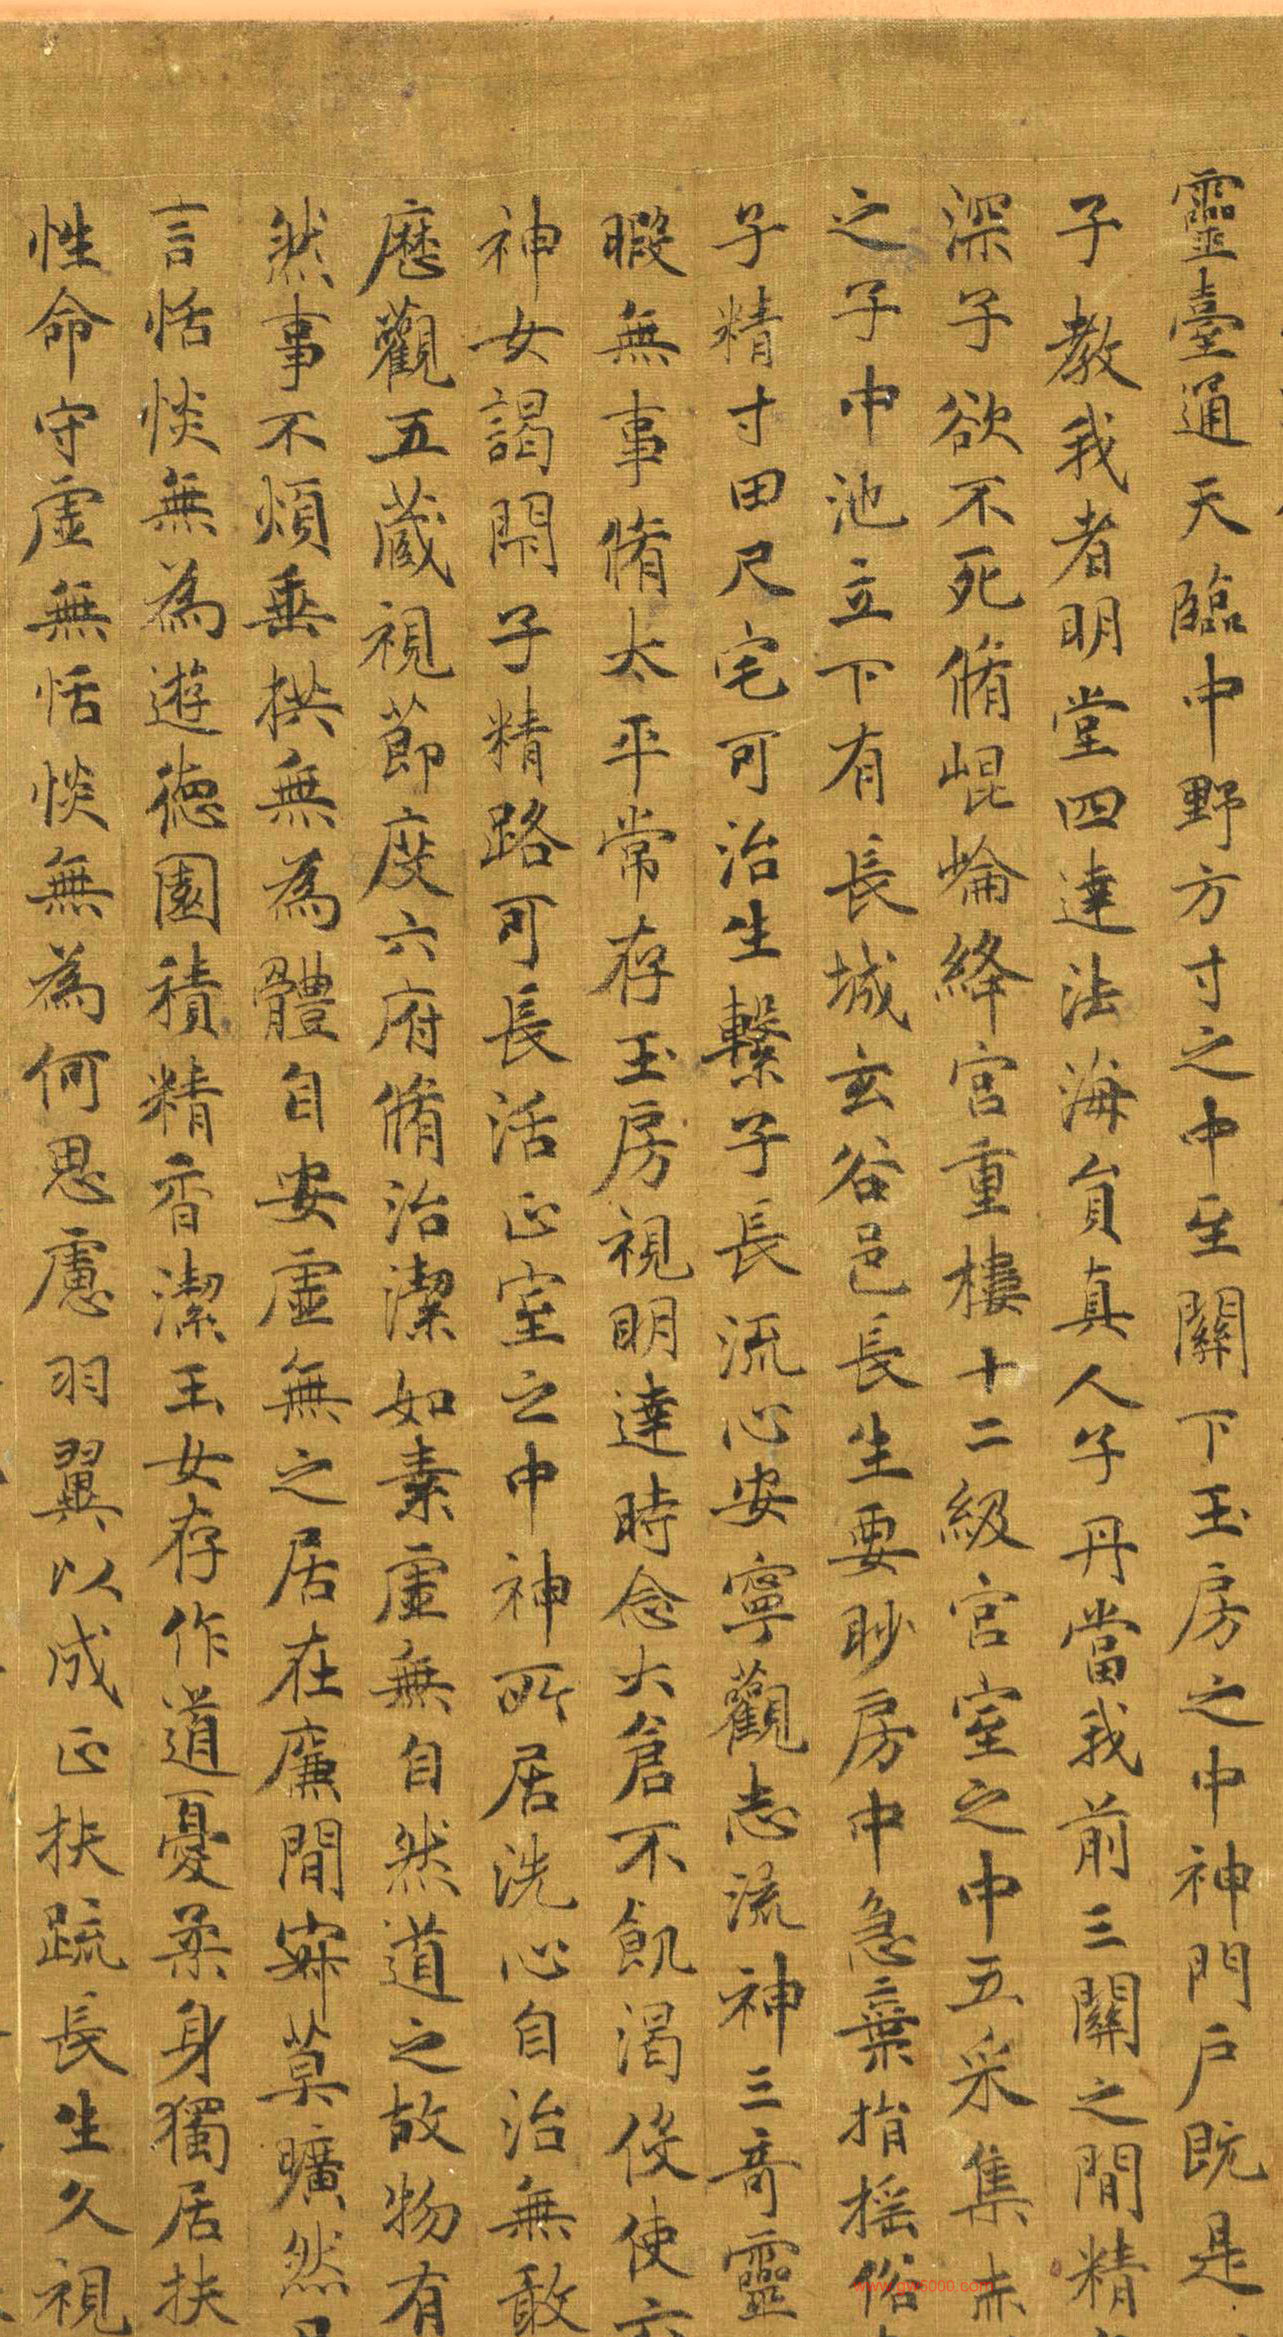 靈臺通天臨中野方寸之中至關下玉房之中神門戶既是
子教我者明堂四達法海員真人子丹當我前三關之間精
深子欲不死脩崐崘絳宮重樓十二級宮室之中五采集赤
之子中池立下有長城玄谷邑長生要眇房中急棄捐搖俗
子精寸田尺宅可治生繫子長流心安寧觀志流神三奇靈
暇無事脩太平常存玉房視明達時念大倉不飢渴伇使六
神女謁開子精路可長活正室之中神所居洗心自治無敢
歷觀五藏視節度六府脩治潔如素虛無自然道之故物有
然事不煩垂拱無為體自安虛無之居在廉間寂莫曠然
言恬惔無為遊德園積精香潔玉女存作道憂柔身獨居扶
性命守虛無恬惔無為何思慮羽翼以成正扶疏長生久視
www.gw6000.com